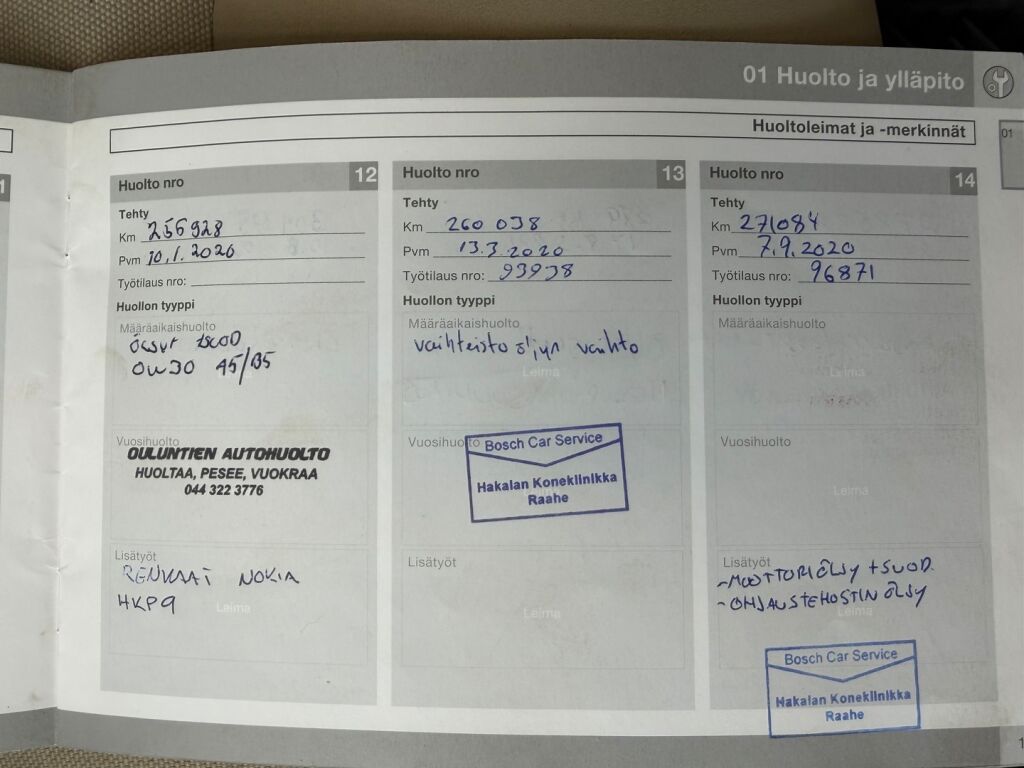 01 Huolto ja ylläpito
Huoltoleimat ja -merkinnät
01
1
Huolto nro 12
Tehty
Km 256928
Pvm 10.1.2020
Työtilaus nro:
Huollon tyyppi
Määräaikaishuolto
0W30 A5/B5
Vuosihuolto
OULUNTIEN AUTOHUOLTO
HUOLTAA, PESEE, VUOKRAA
044 322 3776
Lisätyöt
RENKAAT NOKIA
HKP9
Leima
Huolto nro 13
Tehty
Km 260 038
Pvm 13.3.2020
Työtilaus nro: 93938
Huollon tyyppi
Määräaikaishuolto
vaihteisto öljyn vaihto
Leima
Vuosihuolto
Bosch Car Service
Hakalan Konekliinikka
Raahe
Lisätyöt
Leima
Huolto nro 14
Tehty
Km 271084
Pvm 7.9.2020
Työtilaus nro: 96871
Huollon tyyppi
Määräaikaishuolto
Leima
Vuosihuolto
Leima
Lisätyöt
-MOOTTORIÖLJY + SUOD.
-OHJAUSTEHOSTIN ÖLJY
Bosch Car Service
Hakalan Konekliinikka
Raahe
1